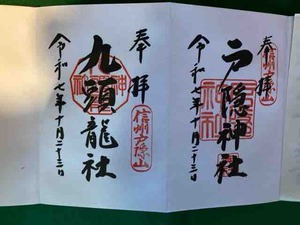 奉拝
信州戸隠山
戸隠神社
令和七年十月二十三日
奉拝
九頭龍社
信州戸隠山
令和七年十月二十三日